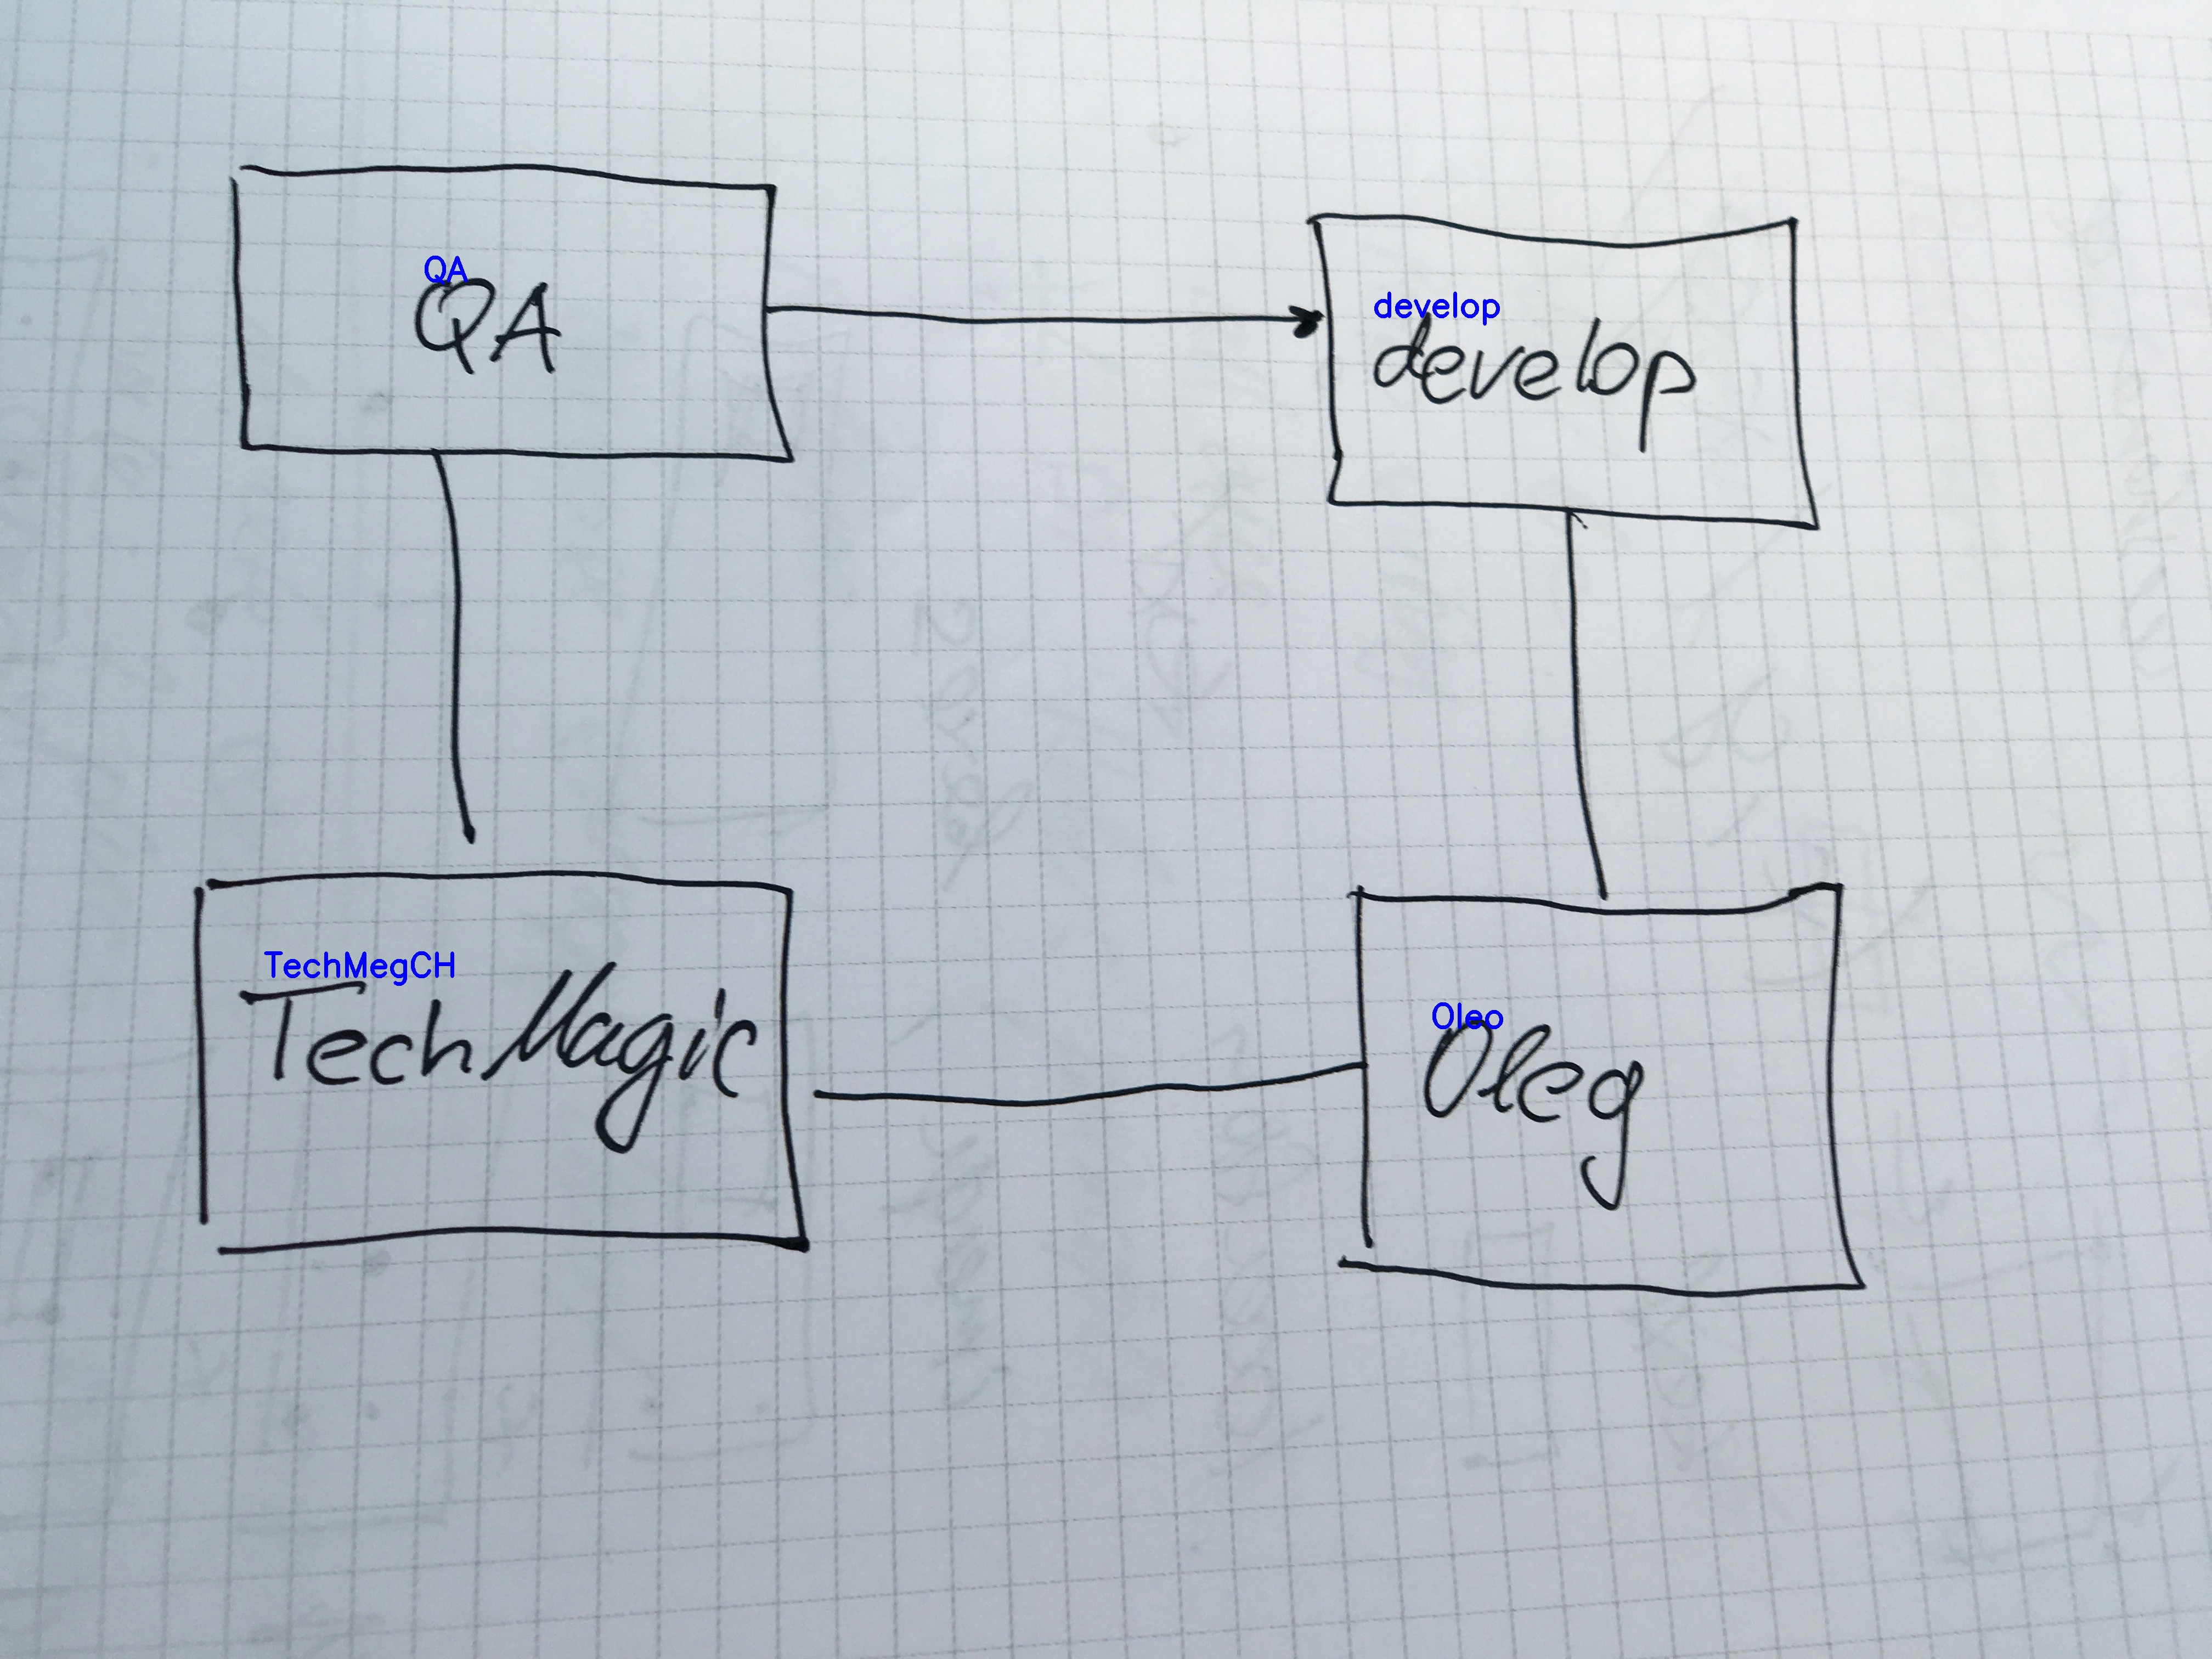 QA
QA
develop
develop
TechMegCH
TechMagic
Oleo
Oleg